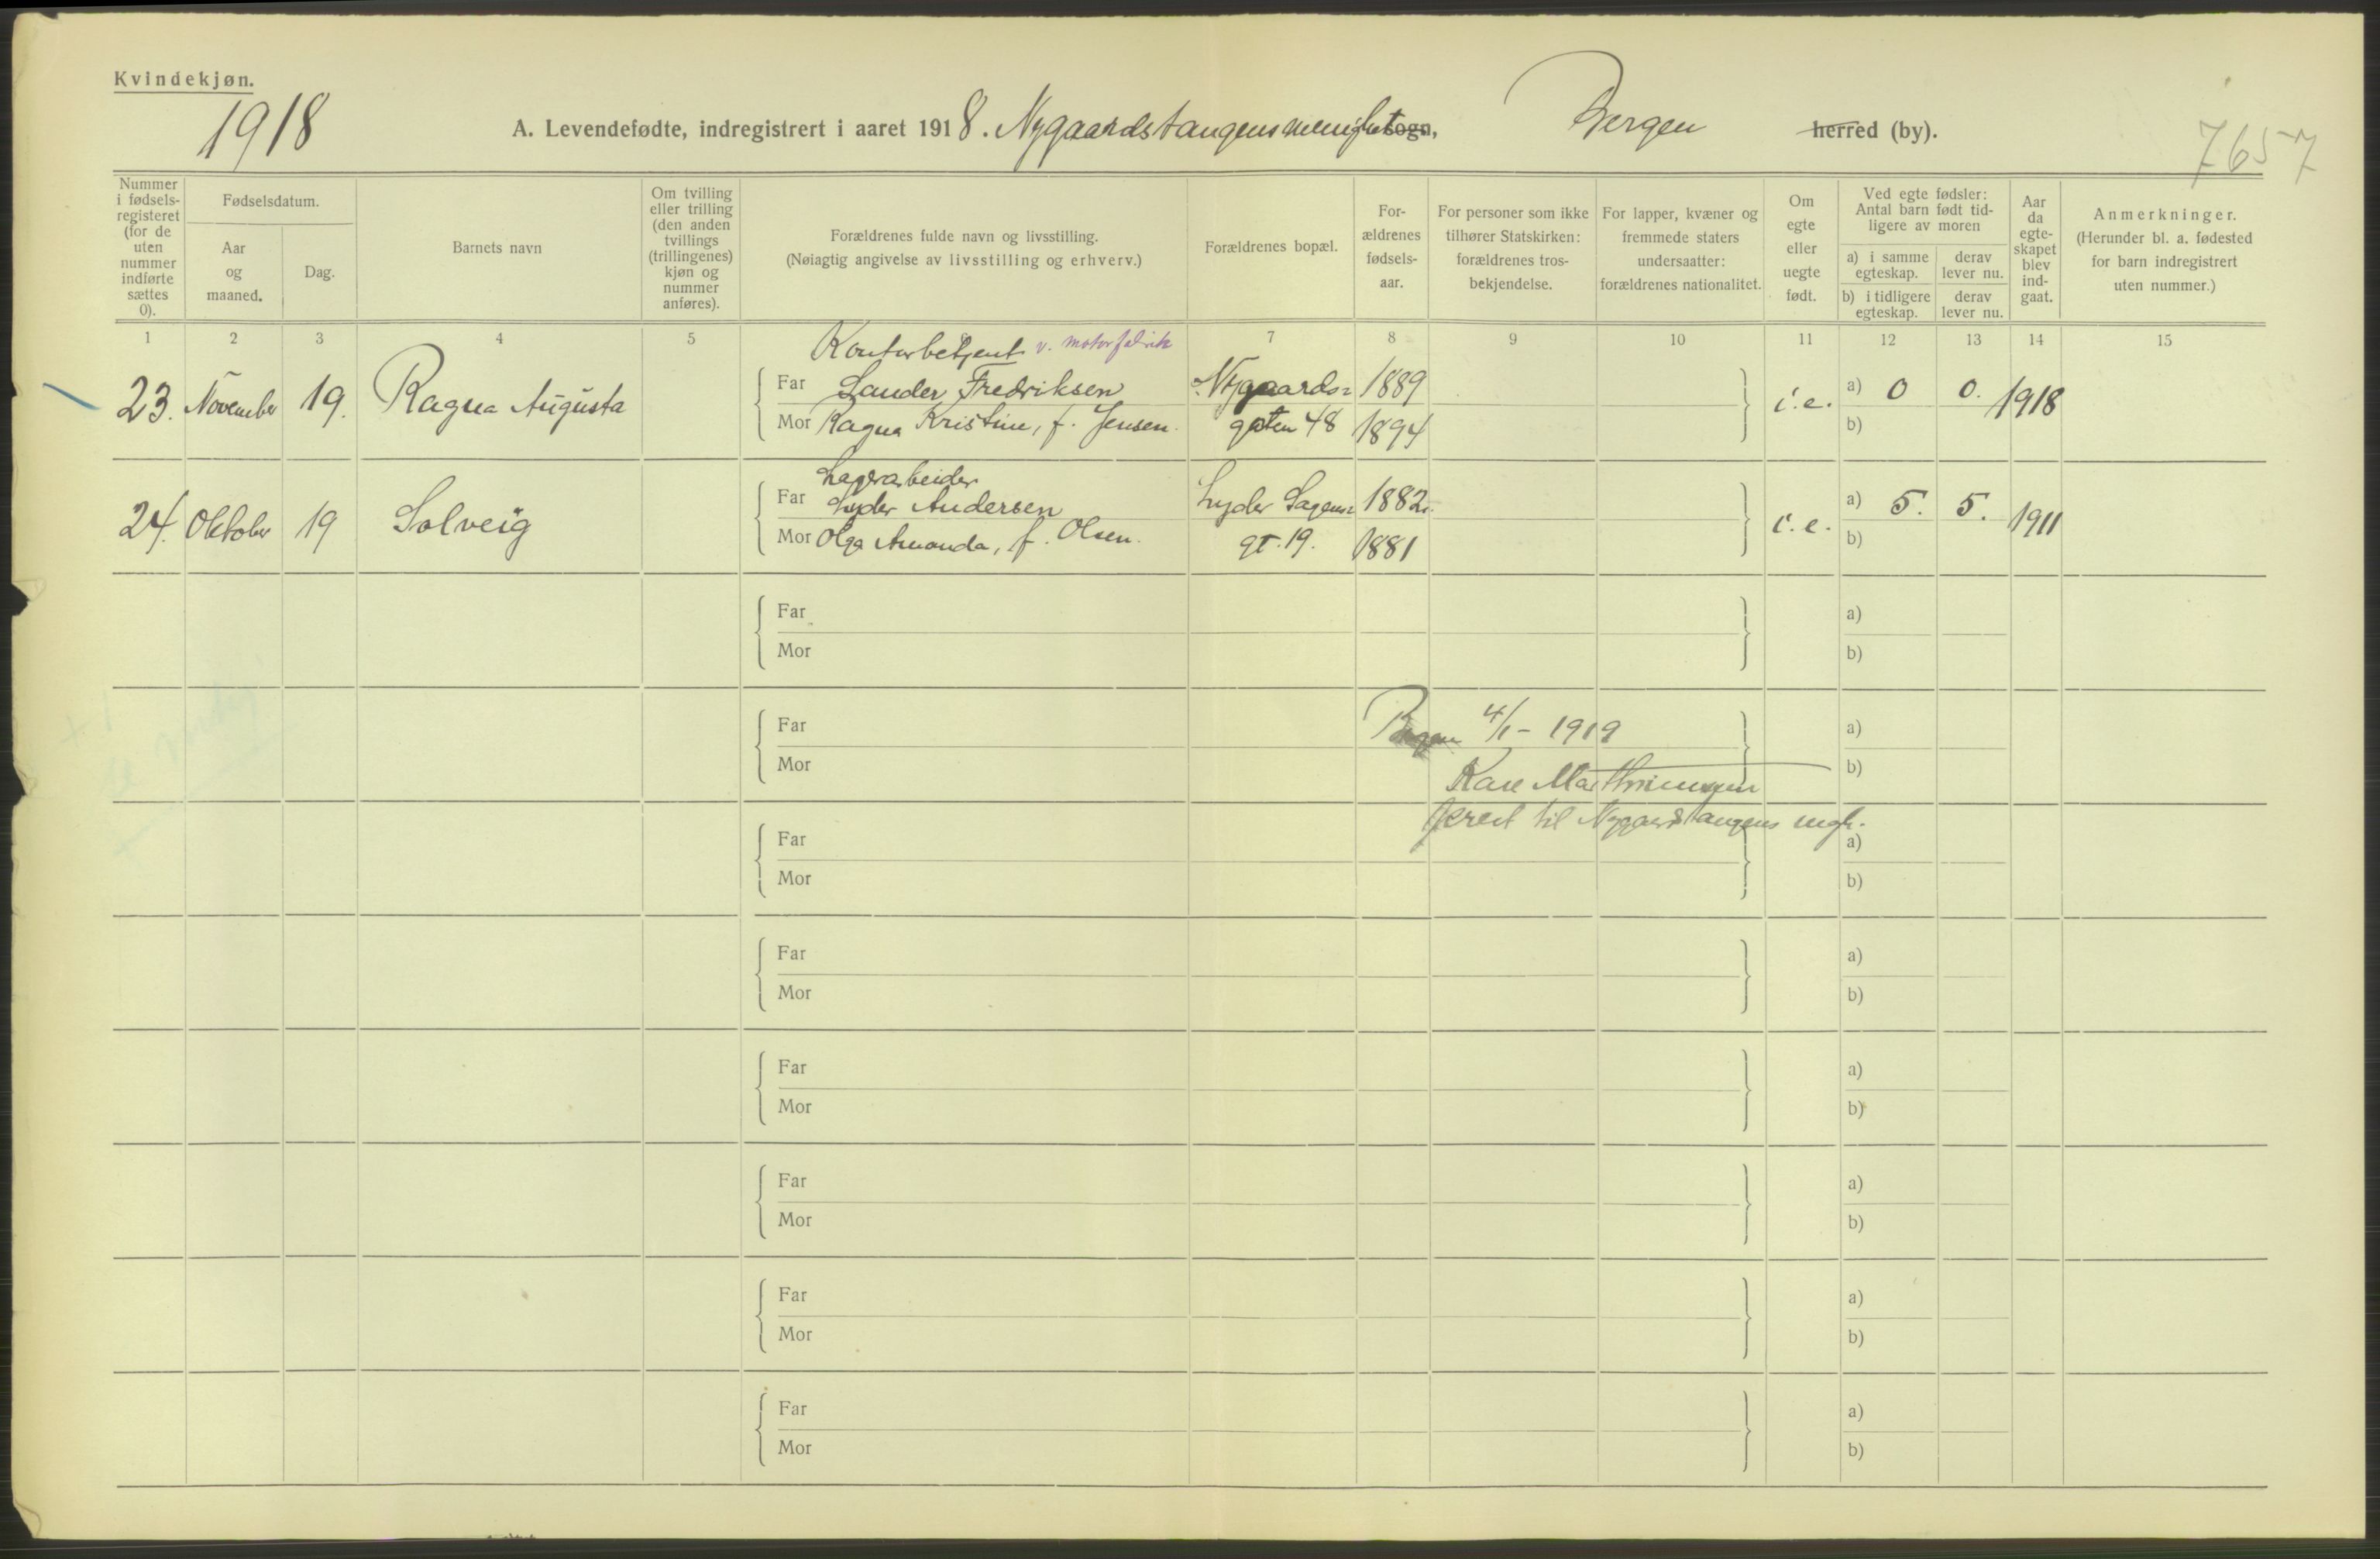 Kvindekjøn.
1918
A. Levendefødte, indregistrert i aaret 1918. Nygaardstangens menighet sogn, Bergen herred (by).
7657
Nummer i fødsels-registeret (for de uten nummer indførte sættes 0).
Fødselsdatum.
Aar og maaned.
Dag.
Barnets navn
Om tvilling eller trilling (den anden tvillings (trillingenes) kjøn og nummer anføres).
Forældrenes fulde navn og livsstilling.
(Nøiagtig angivelse av livsstilling og erhverv.)
Forældrenes bopæl.
For-ældrenes fødsels-aar.
For personer som ikke tilhører Statskirken: forældrenes tros-bekjendelse.
For lapper, kvæner og fremmede staters undersaatter: forældrenes nationalitet.
Om egte eller uegte født.
Ved egte fødsler: Antal barn født tid-ligere av moren
a) i samme egteskap.
derav lever nu.
b) i tidligere egteskap.
derav lever nu.
Aar da egte-skapet blev ind-gaat.
Anmerkninger.
(Herunder bl. a. fødested for barn indregistrert uten nummer.)
1 2 3 4 5 7 8 9 10 11 12 13 14 15
Kontorbetjent v. motorfabrik
23. November 19. Ragna Augusta Far Sander Fredriksen Nygaards= 1889 i.e. a) 0 0. 1918
Mor Ragna Kristine, f. Jensen. gaten 48 1894 b)
Lagerarbeider
24. Oktober 19 Solveig Far Lyder Andersen Lyder Sagens= 1882. i.e. a) 5. 5. 1911
Mor Olga Amanda, f. Olsen. gt. 19. 1881 b)
Far a)
Mor b)
Bergen 4/1 - 1919
Far a)
Mor b)
Prest til Nygaardstangens mgh.
Far a)
Mor b)
Far a)
Mor b)
Far a)
Mor b)
Far a)
Mor b)
Far a)
Mor b)
Far a)
Mor b)